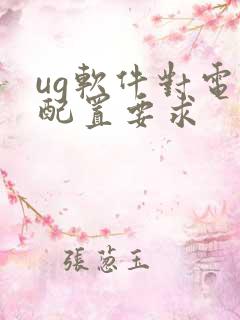 ug軟件對電
配置要求
張蔥玉